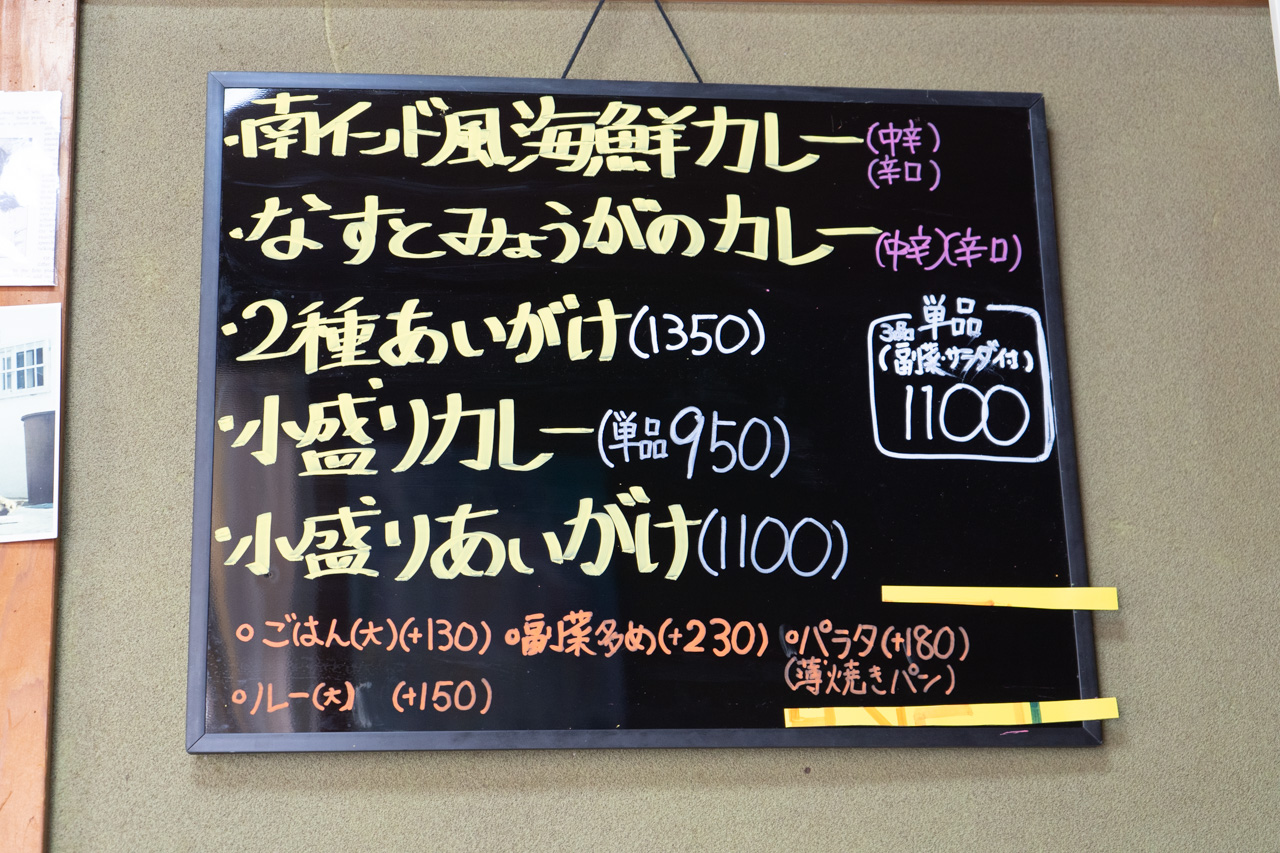 ・南インド風海鮮カレー(中辛)
(辛口)
・なすとみょうがのカレー(中辛)(辛口)
・2種あいがけ(1350)
単品
3品
(副菜・サラダ付)
1100
・小盛りカレー(単品950)
・小盛りあいがけ(1100)
○ごはん(大)(+130) ○副菜多め(+230) ○パラタ(+180)
(薄焼きパン)
○ルー(大) (+150)